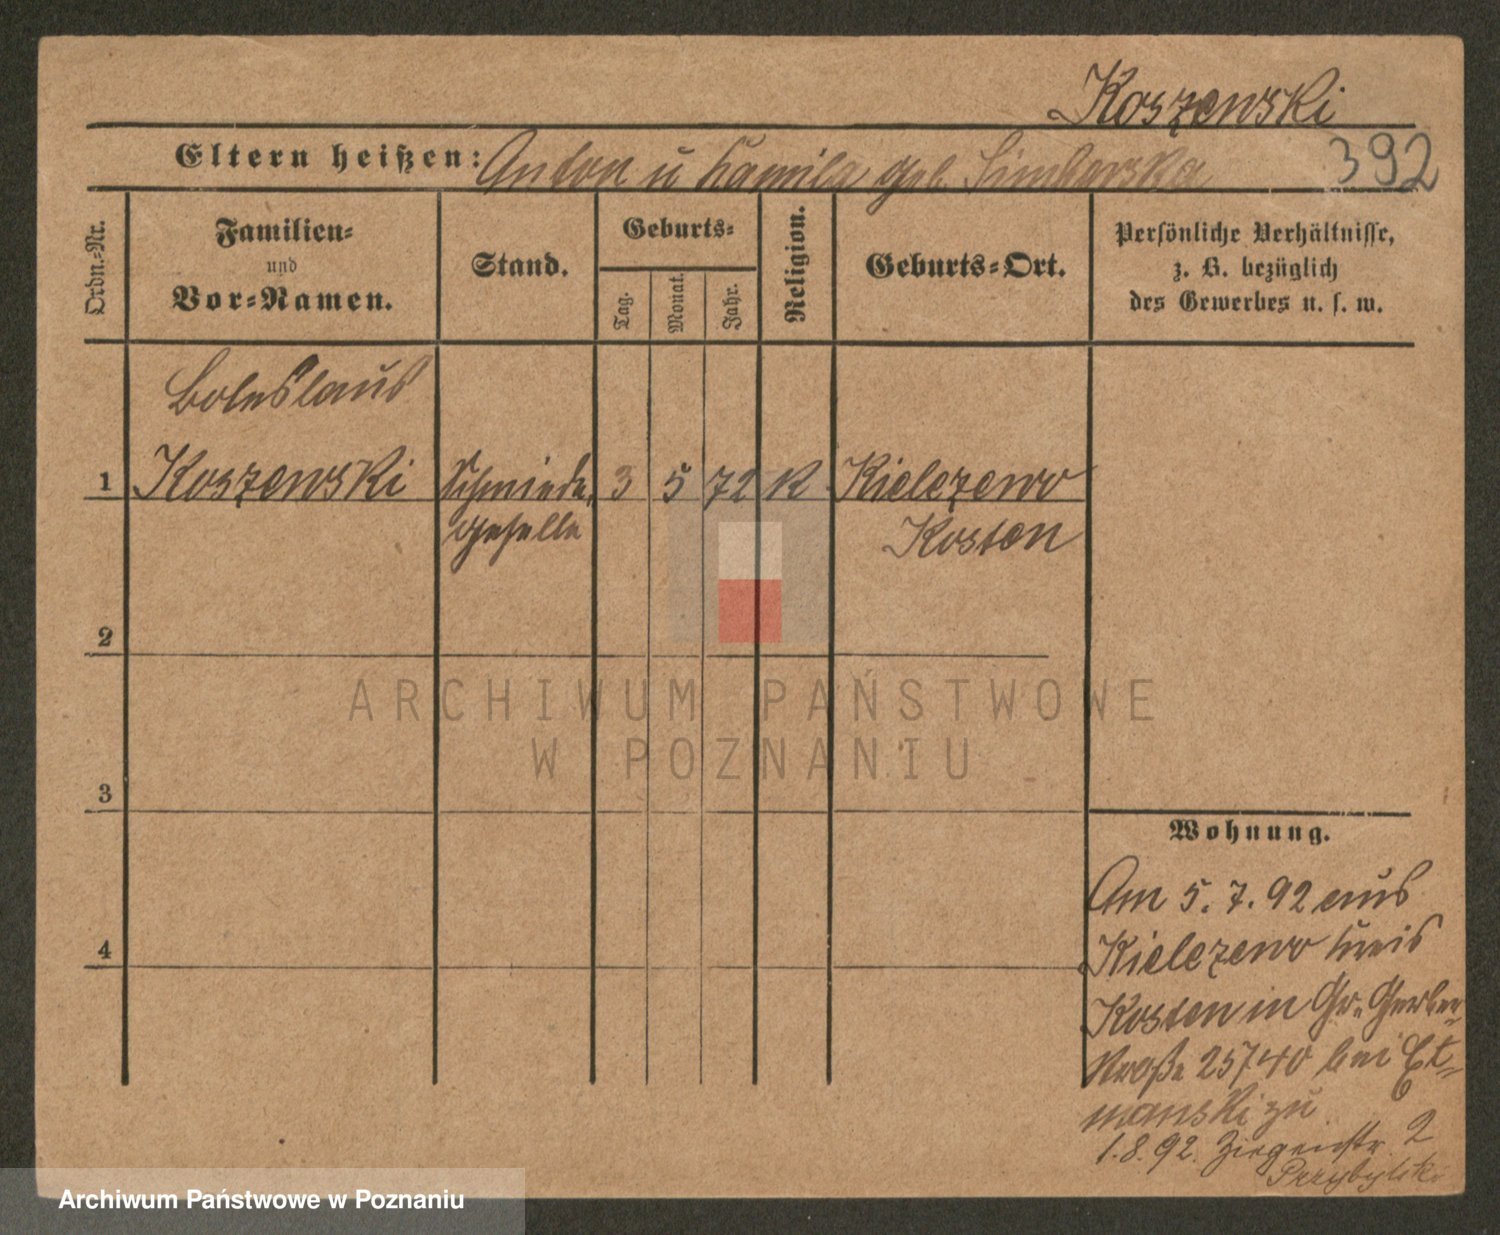 Koszewski
Eltern heißen: Anton u Kamila geb.
392
Ordn.-Nr.
Familien-
und
Vor-Namen.
Stand.
Geburts-
Tag.
Monat.
Jahr.
Religion.
Geburts-Ort.
Persönliche Verhältnisse,
z. B. bezüglich
des Gewerbes u. s. w.
Boleslaus
1 Koszewski Schmiede- 3 5 72 K Kielczewo
geselle Kosten
2
3
4
ARCHIWUM PAŃSTWOWE
W POZNANIU
Wohnung.
Am 5. 7. 92 aus
Kielczewo Kreis
Kosten in Gr. Gerber-
straße 25/40 bei Et-
manski zu
1.8.92. Ziegenstr. 2
Przybylski
Archiwum Państwowe w Poznaniu